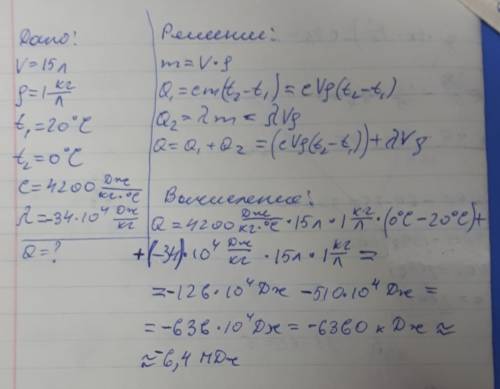 Дано:
V=15л
ρ=1 кг/л
t₁=20°C
t₂=0°C
c=4200 Дж/кг·°C
λ=-34·10⁴ Дж/кг
Q=?
Решение:
m=V·ρ
Q₁=cm(t₂-t₁)=cVρ(t₂-t₁)
Q₂=λm=λVρ
Q=Q₁+Q₂=(cVρ(t₂-t₁))+λVρ
Вычисление:
Q=4200 Дж/кг·°C·15л·1 кг/л·(0°C-20°C)+
+(-34)·10⁴ Дж/кг·15л·1 кг/л=
=-126·10⁴Дж -510·10⁴Дж=
=-636·10⁴Дж=-6360кДж≈
≈-6,4МДж